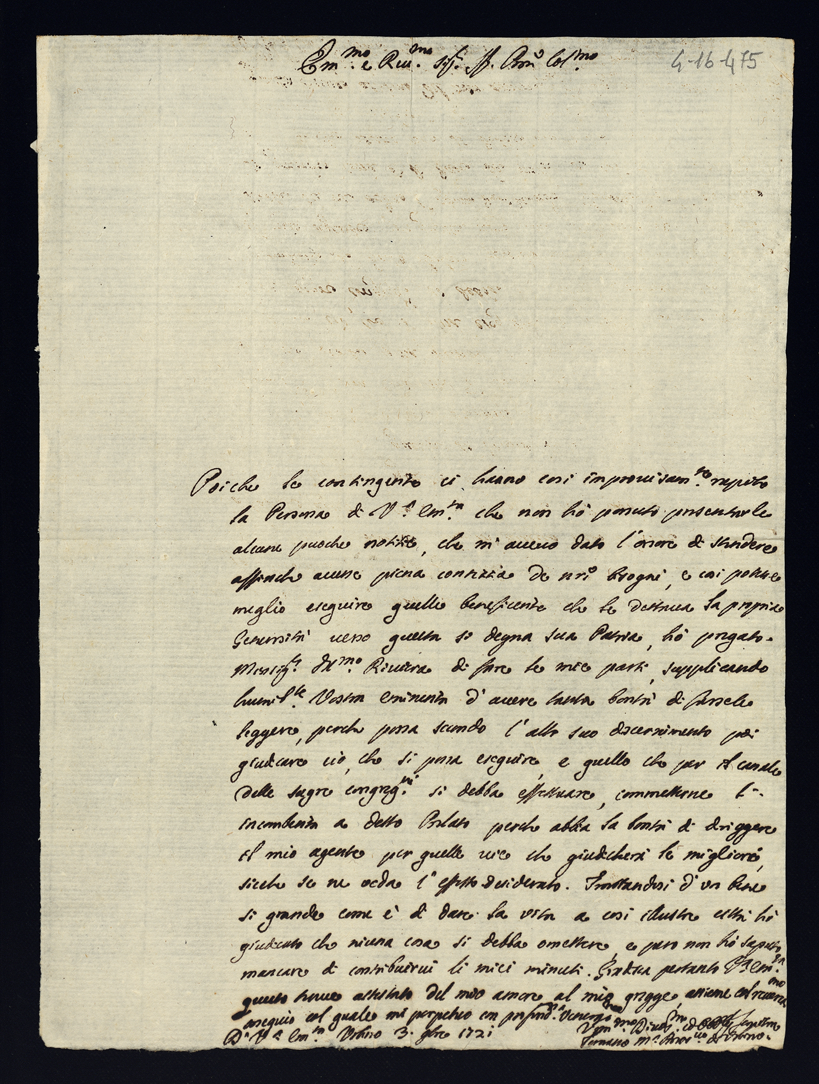 Em.mo e Rev.mo Sig.r Pron Col.mo
4-16-475
Poiche le contingenze ci hanno cosi improvisam.te rapito
la Persona di V.a Em.za che non hò potuto presentarle
alcune puoche notizie, che m'aveva dato l'onore di stendere
affinche avesse piena contezza de nri bisogni, e cosi potesse
meglio eseguire quelle beneficenze che le dettava la propria
Generosità verso questa si degna sua Patria, hò pregato
Monsig.r Riviera di fare le mie parti, supplicando
humil.te Vostra Eminenza d'avere tanta bontà di farsele
leggere, perche possa secondo l'alto suo discernimento poi
giudicare ciò, che si possa eseguire, e quello che per il canale
delle sagre congreg.ni si debba effettuare, commetterne l'-
incombenza a detto Prelato perche abbia la bontà di diriggere
il mio agente per quelle vie che giudicherà le migliori,
sicche se ne veda l'effetto desiderato. Trattandosi d'un bene
si grande come è di dare la vita a cosi illustre città hò
giudicato che niuna cosa si debba omettere, e pero non hò saputo
mancare di contribuirvi li miei minuti. Gradisca pertanto V.a Em.za
questo tenue attestato del mio amore al mio gregge, assieme col
ossequio col quale mi perpetuo con profond.ma venerazione
D. V.a Em.za Urbino 3. 9bre 1721
Tommaso M.a Arciv.o di Urbino.